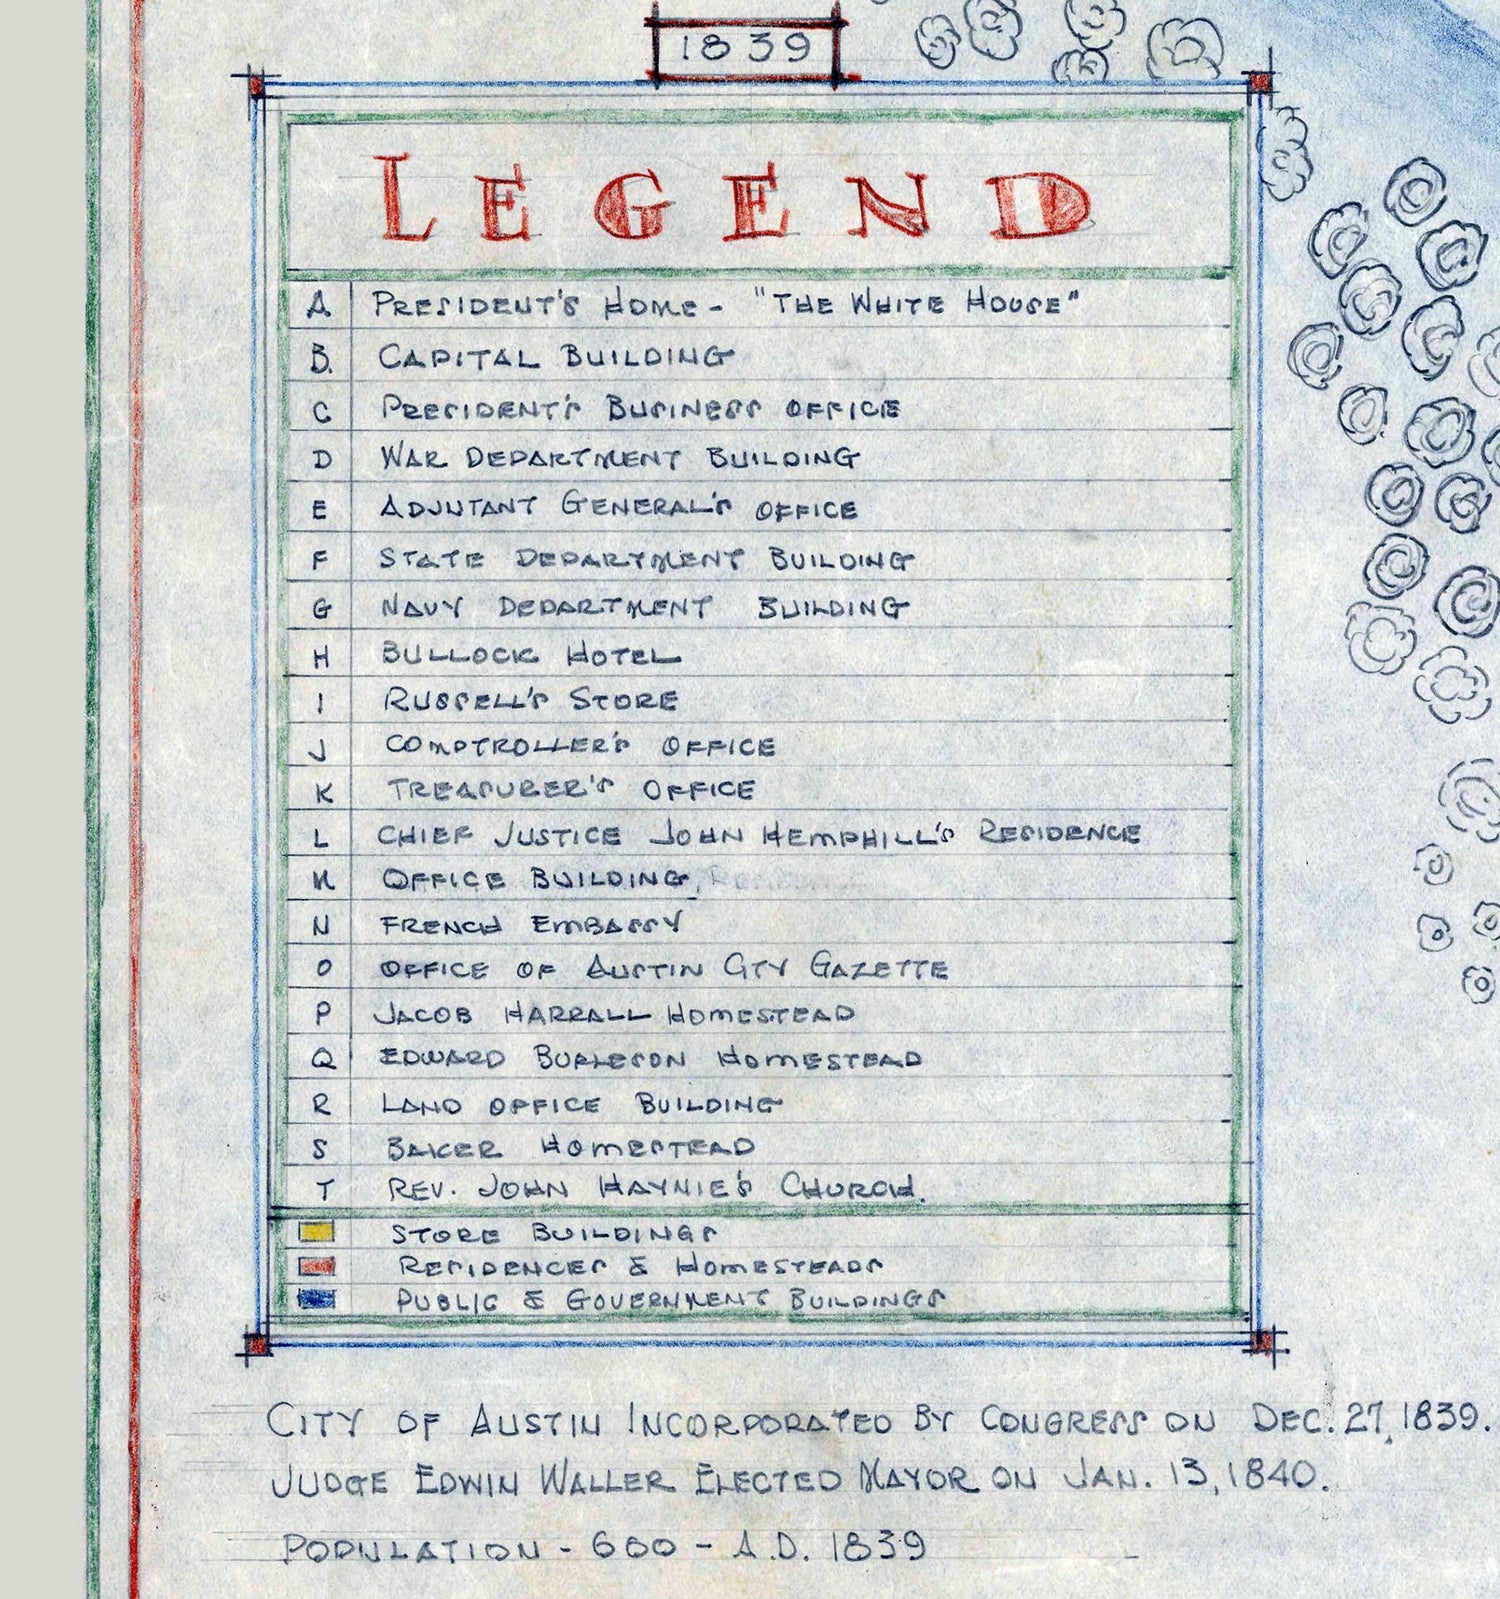 1839
LEGEND
A. PRESIDENT'S HOME - "THE WHITE HOUSE"
B. CAPITAL BUILDING
C PRESIDENT'S BUSINESS OFFICE
D WAR DEPARTMENT BUILDING
E ADJUTANT GENERAL'S OFFICE
F STATE DEPARTMENT BUILDING
G NAVY DEPARTMENT BUILDING
H BULLOCK HOTEL
I RUSSELL'S STORE
J COMPTROLLER'S OFFICE
K TREASURER'S OFFICE
L CHIEF JUSTICE JOHN HEMPHILL'S RESIDENCE
M OFFICE BUILDING,
N FRENCH EMBASSY
O OFFICE OF AUSTIN CITY GAZETTE
P JACOB HARRALL HOMESTEAD
Q EDWARD BURLESON HOMESTEAD
R LAND OFFICE BUILDING
S BAKER HOMESTEAD
T REV. JOHN HAYNIE'S CHURCH.
STORE BUILDINGS
RESIDENCES & HOMESTEADS
PUBLIC & GOVERNMENT BUILDINGS
CITY OF AUSTIN INCORPORATED BY CONGRESS ON DEC. 27, 1839.
JUDGE EDWIN WALLER ELECTED MAYOR ON JAN. 13, 1840.
POPULATION - 600 - A.D. 1839